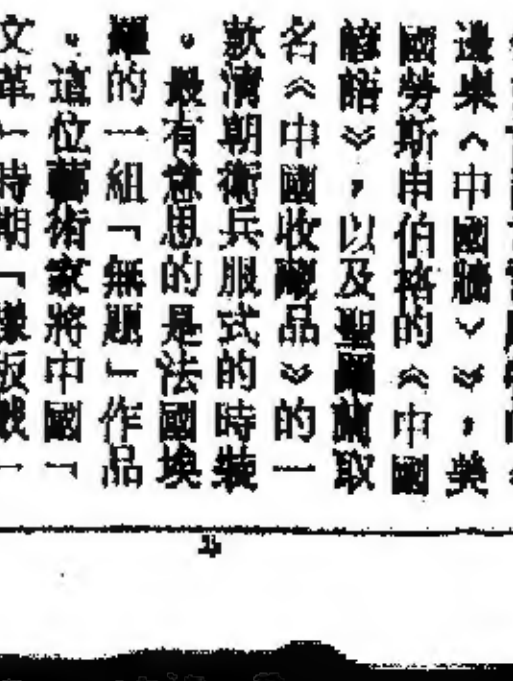 邊樂〈中國牆〉》,美
國勞斯申伯格的《中國
諺語》,以及聖羅蘭取
名《中國收藏品》的一
款清朝衛兵服式的時裝
。最有意思的是法國埃
羅的一組「無題」作品
。這位藝術家將中國「
文革」時期「樣板戲」